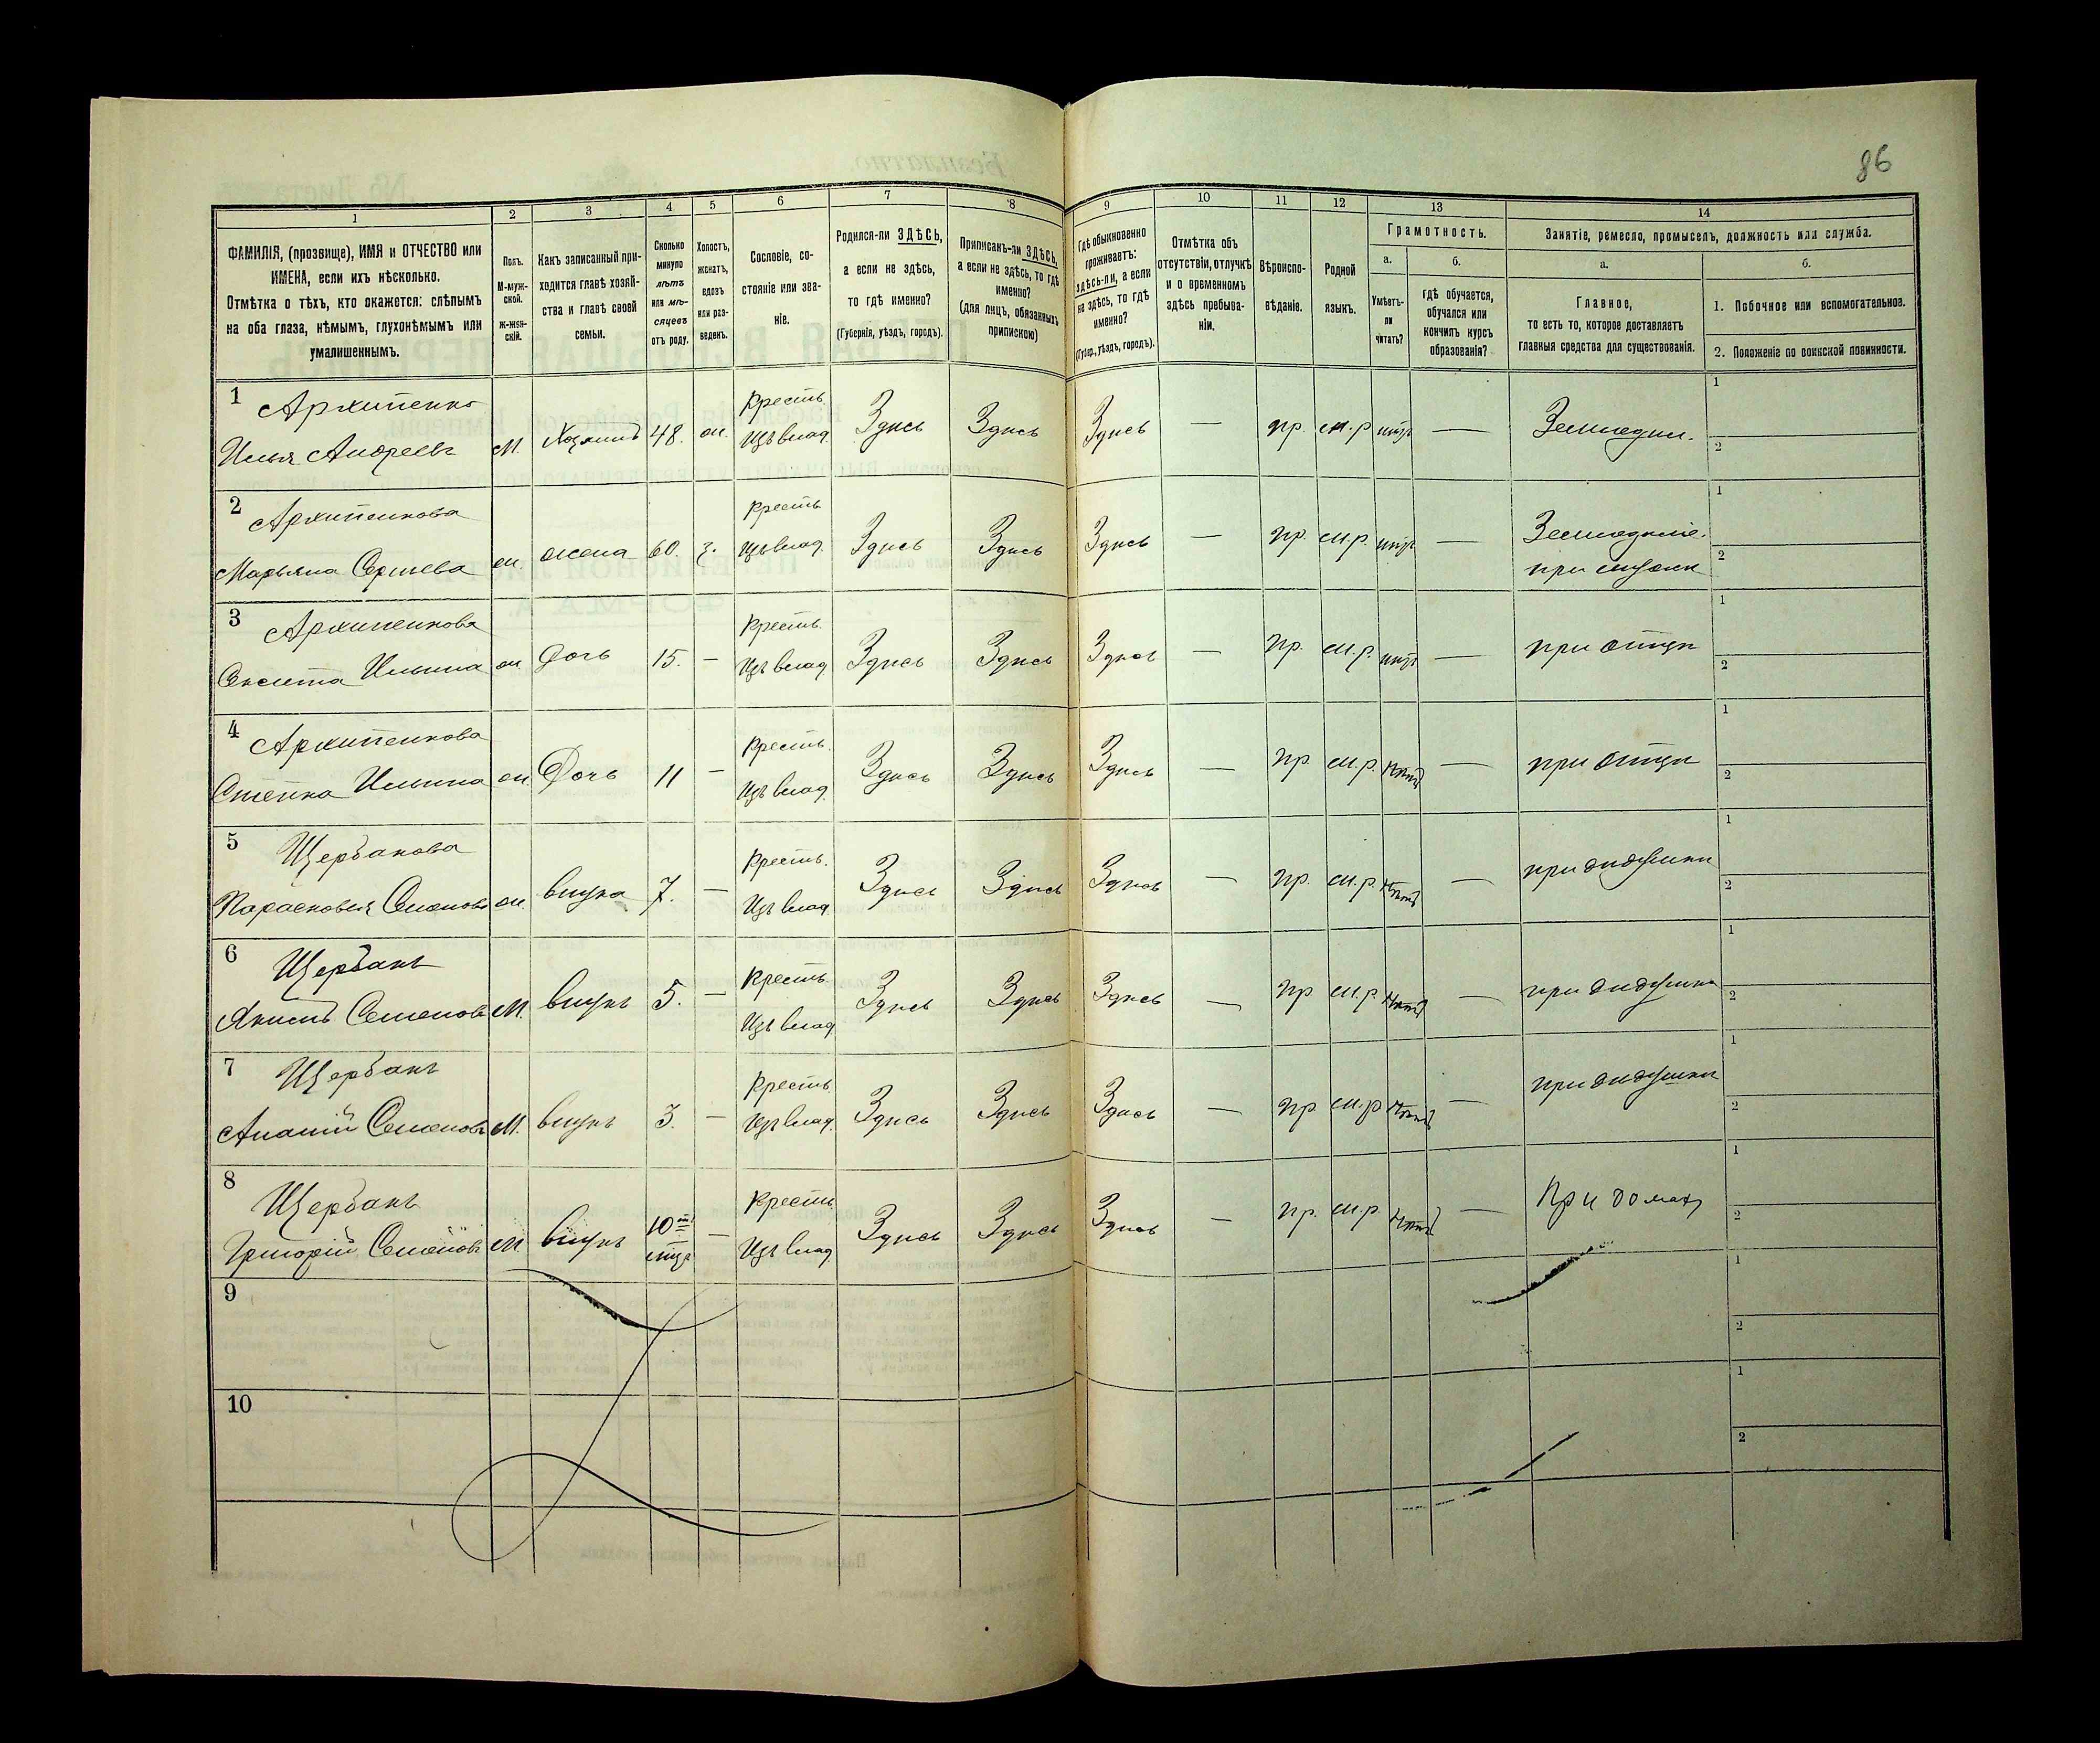 86
1
2
3
4
5
6
7
8
9
10
11
12
13
14
ФАМИЛІЯ, (прозвище), ИМЯ и ОТЧЕСТВО или
ИМЕНА, если ихъ нѣсколько.
Отмѣтка о тѣхъ, кто окажется: слѣпымъ
на оба глаза, нѣмымъ, глухонѣмымъ или
умалишеннымъ.
Полъ.
М-муж-
ской.
Ж-жен-
скій.
Какъ записанный при-
ходится главѣ хозяй-
ства и главѣ своей
семьи.
Сколько
минуло
лѣтъ
или мѣ-
сяцевъ
отъ роду.
Холостъ,
женатъ,
вдовъ
или раз-
веденъ.
Сословіе, со-
стояніе или зва-
ніе.
Родился-ли ЗДѢСЬ,
а если не здѣсь,
то гдѣ именно?
(Губернія, уѣздъ, городъ).
Приписанъ-ли ЗДѢСЬ,
а если не здѣсь, то гдѣ
именно?
(для лицъ, обязанныхъ
припискою)
Гдѣ обыкновенно
проживаетъ:
здѣсь-ли, а если
не здѣсь, то гдѣ
именно?
(Губер., уѣздъ, городъ).
Отмѣтка объ
отсутствіи, отлучкѣ
и о временномъ
здѣсь пребыва-
ніи.
Вѣроиспо-
вѣданіе.
Родной
языкъ.
Грамотность.
а.
Умѣетъ-
ли
читать?
б.
гдѣ обучается,
обучался или
кончилъ курсъ
образованія?
Занятіе, ремесло, промыселъ, должность или служба.
а.
Главное,
то есть то, которое доставляетъ
главныя средства для существованія.
б.
1. Побочное или вспомогательное.
2. Положеніе по воинской повинности.
1 Архипенко Кресть. 1
Илья Андреевъ М. Хозяинъ 48. ж. Изъ влад. Здѣсь Здѣсь Здѣсь — пр. м.р нѣтъ — Земледѣл. 2
2 Архипенкова Кресть 1
Марьяна Сергѣева ж. жена 60. з. Изъ влад. Здѣсь Здѣсь Здѣсь — пр. м.р. нѣтъ — Земледѣліе. 2
при мужѣ
3 Архипенкова Кресть. 1
Ильина ж. Дочь 15. — Изъ влад. Здѣсь Здѣсь Здѣсь — пр. м.р. нѣтъ — при отцѣ 2
4 Архипенкова Кресть. 1
Ильина ж. Дочь 11 — Изъ влад. Здѣсь Здѣсь Здѣсь — пр. м.р. нѣтъ — при отцѣ 2
5 Щербакова Кресть. 1
Парасковья Семенова ж. внука 7. — Изъ влад. Здѣсь Здѣсь Здѣсь — пр. м.р. нѣтъ — при дидушки 2
6 Щербакъ Кресть. 1
Якимъ Семеновъ М. внукъ 5. — Изъ влад Здѣсь Здѣсь Здѣсь — пр м.р нѣтъ — при дидушки 2
7 Щербакъ Кресть. 1
Ананій Семеновъ М. внукъ 3. — Изъ влад. Здѣсь Здѣсь Здѣсь — пр м.р нѣтъ — при дидушки 2
8 Щербакъ Кресть 1
Григорій Семеновъ М внукъ 10 мѣц — Изъ влад. Здѣсь Здѣсь Здѣсь — пр. м.р. нѣтъ — При домѣ 2
9 1
2
10 1
2